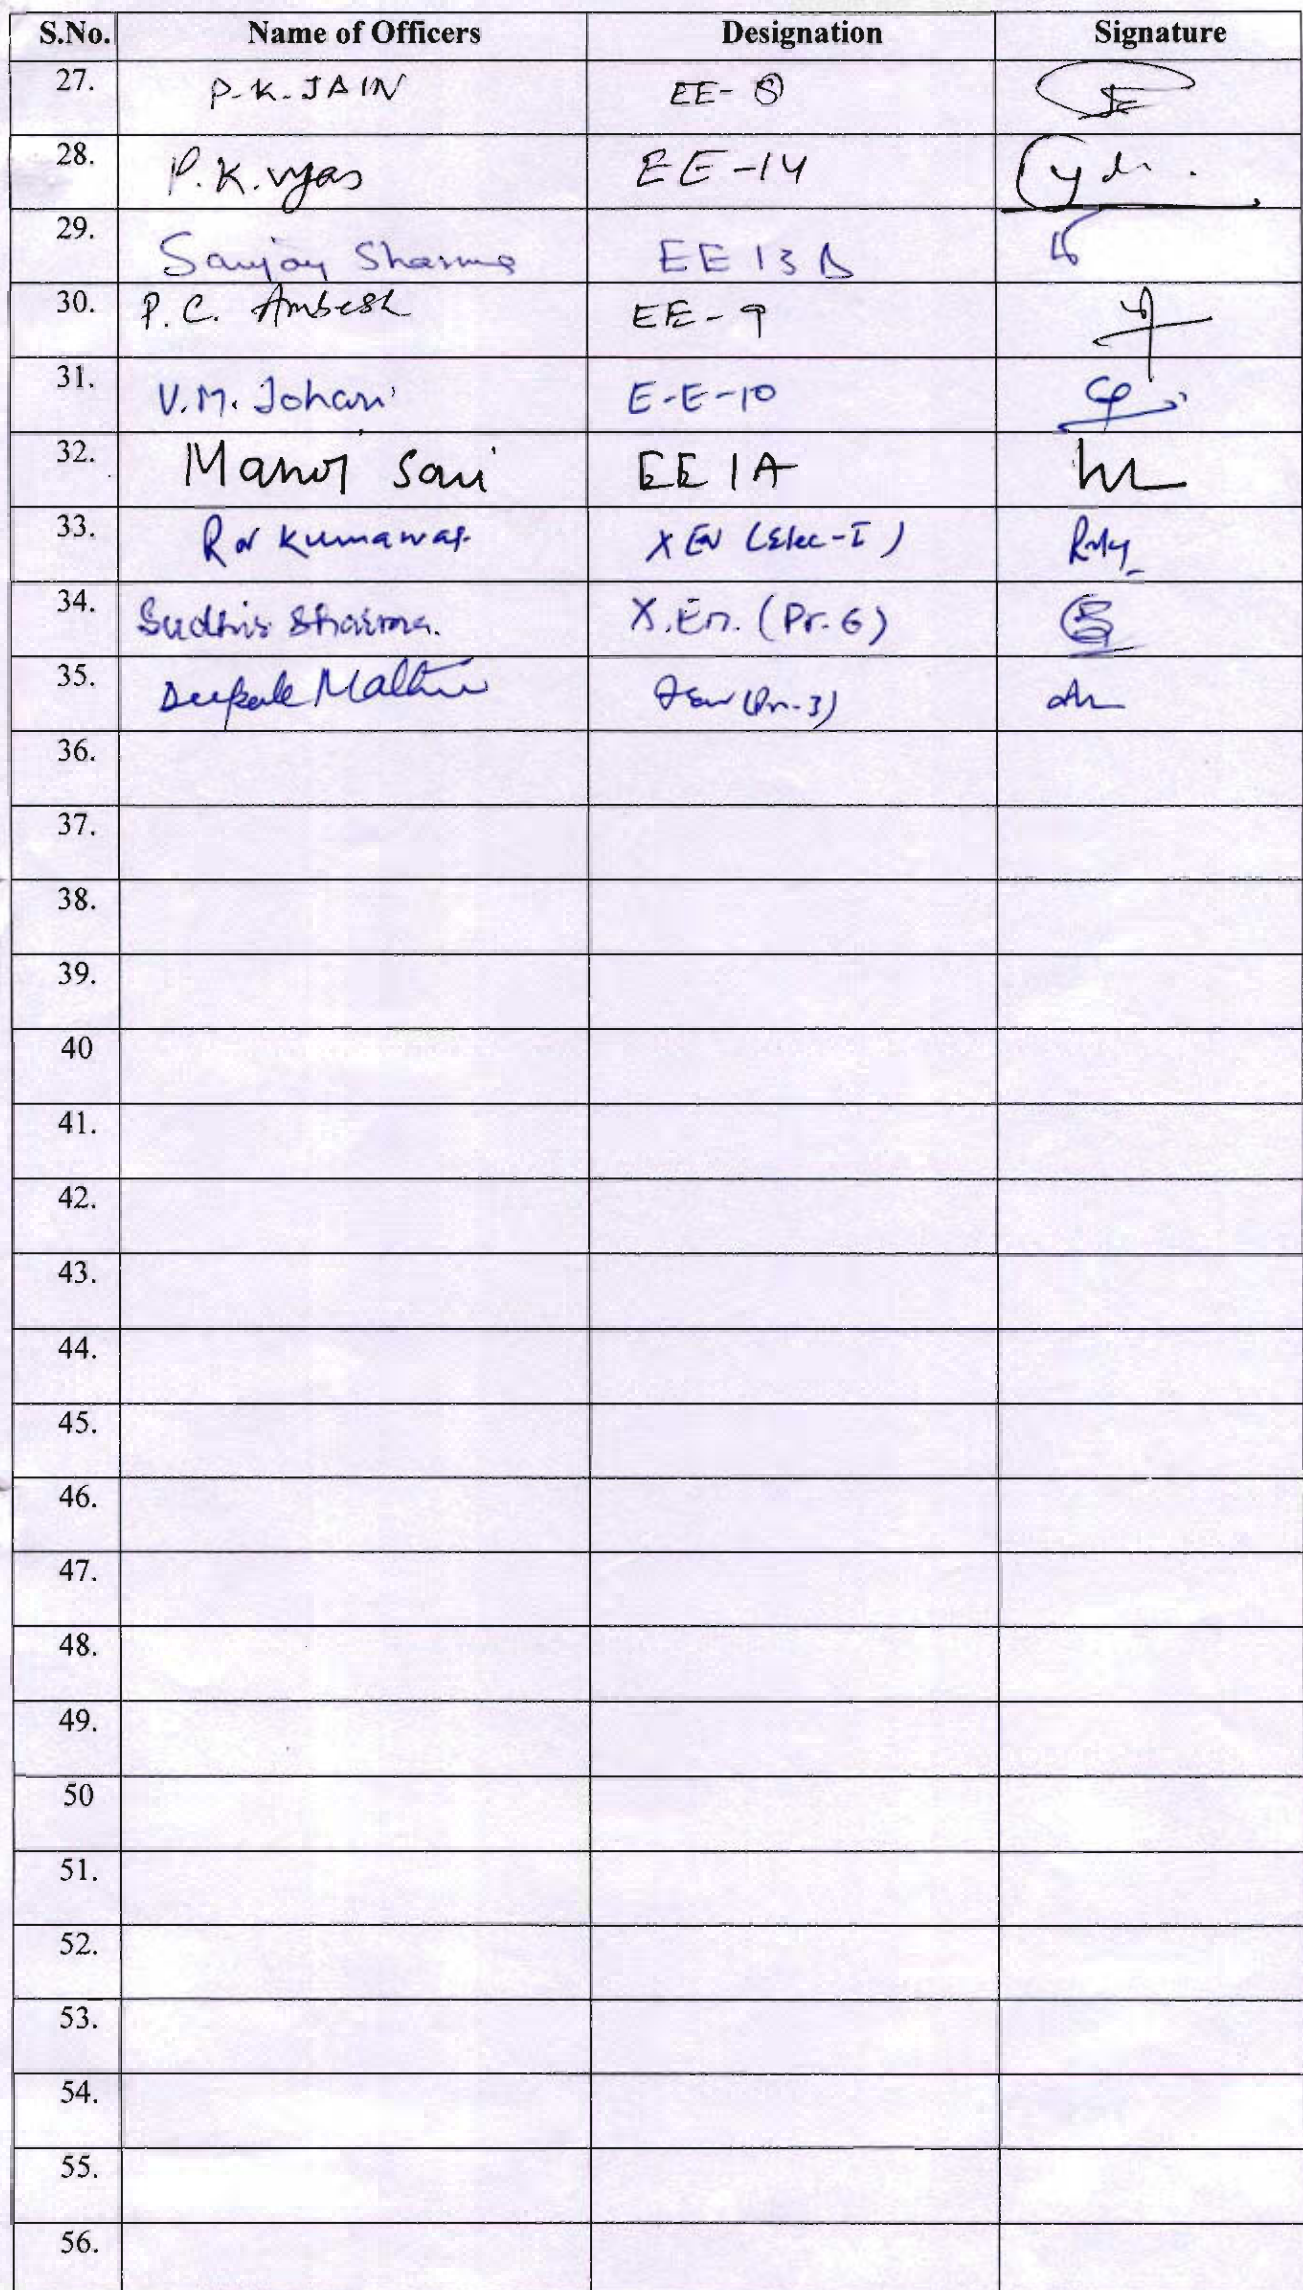 S.No. Name of Officers Designation Signature
27. P.K. JAIN EE- 8
28. P.K. vyas EE-14
29. Sanjay Sharma EE 13 B
30. P.C. Ambesh EE-9
31. V.M. Johari E-E-10
32. Manoj Soni EE 1A
33. Kumawat XEN (Elec-I)
34. Sudhir Sharma. X.En. (Pr. 6)
35. Deepak Mathur (Pr.-3)
36.
37.
38.
39.
40
41.
42.
43.
44.
45.
46.
47.
48.
49.
50
51.
52.
53.
54.
55.
56.